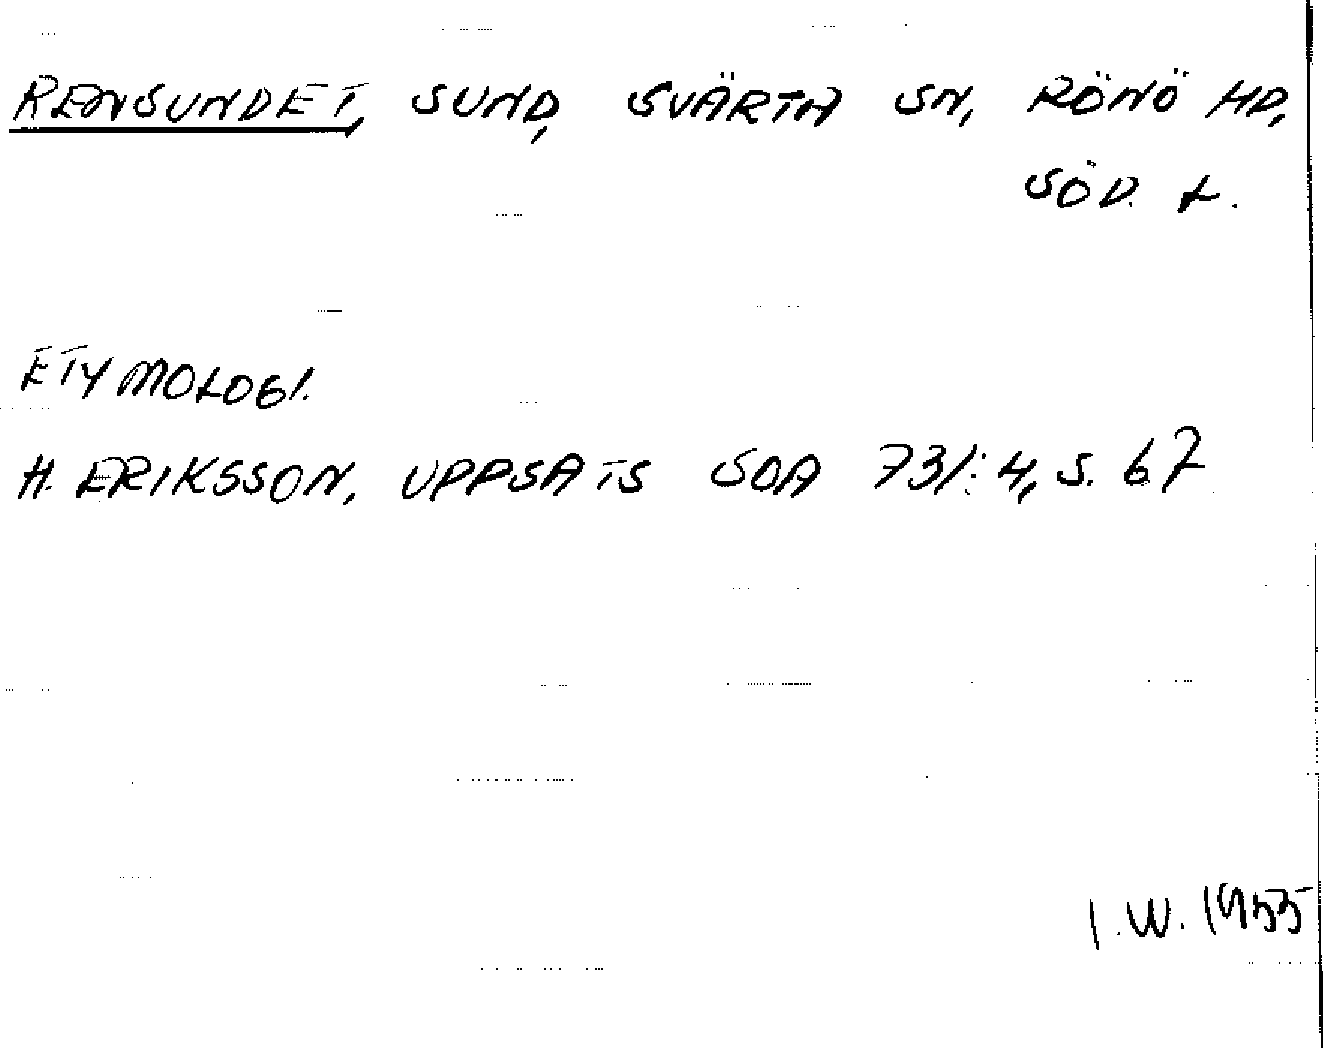 RENSUNDET, SUND, SVÄRTA SN, RÖNÖ HD,
SÖD. L.
ETYMOLOGI.
H. ERIKSSON, UPPSATS SOA 731:4, S. 67
I.W. 1955